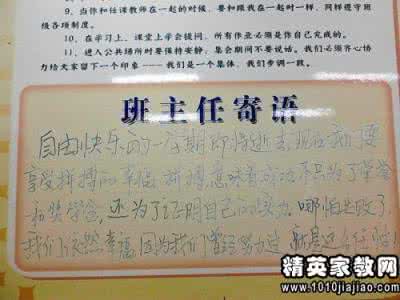 9、当你和任课教师在一起的时候,要和跟我在一起时一样,同样遵守班
级各项制度。
10、在学习上,课堂上学会提问,所有作业必须是你自己完成的。
11、进入公共场所时要保持安静;集会期间不要说话。我们必须齐心协
力给大家留下一个印象——我们是一个集体,我们步调一致。
班主任寄语
自由快乐的一星期即将逝去,现在我们要
享受拼搏的幸福,拼搏意味着成功,不只为了荣誉
和奖学金,还为了证明自己的能力。哪怕失败了,
我们依然幸福,因为我们曾经努力过,
精英家教网
www.1010jiajiao.com